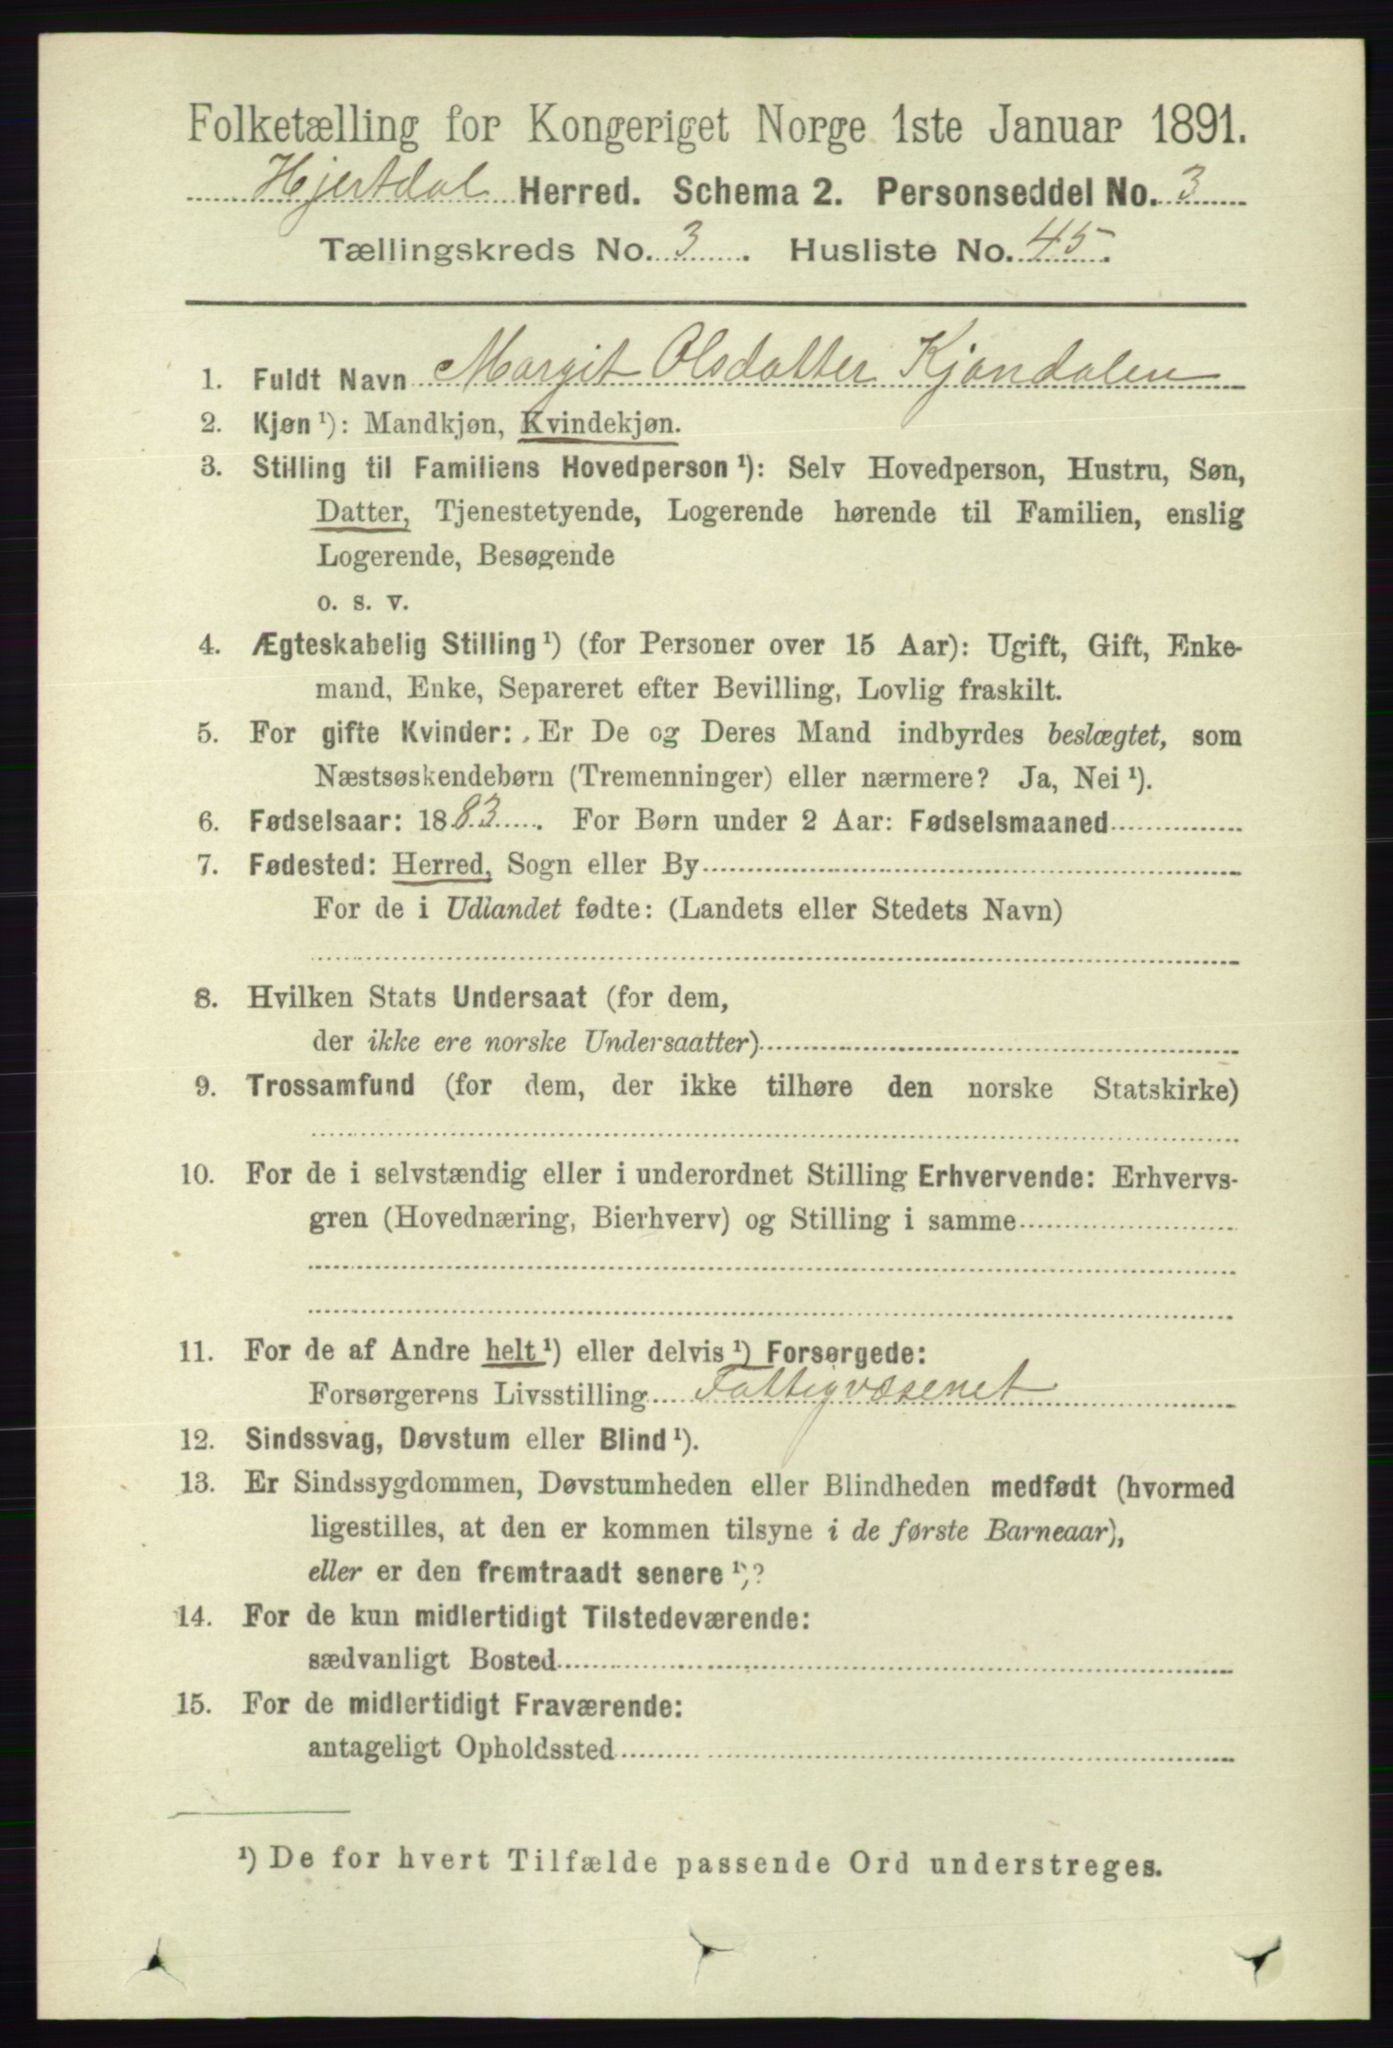 Folketælling for Kongeriget Norge 1ste Januar 1891.
Hjertdal Herred. Schema 2. Personseddel No. 3
Tællingskreds No. 3. Husliste No. 45.
1. Fuldt Navn Margit Olsdatter Kjøndalen
2. Kjøn ¹): Mandkjøn, Kvindekjøn.
3. Stilling til Familiens Hovedperson ¹): Selv Hovedperson, Hustru, Søn,
Datter, Tjenestetyende, Logerende hørende til Familien, enslig
Logerende, Besøgende
o. s. v.
4. Ægteskabelig Stilling ¹) (for Personer over 15 Aar): Ugift, Gift, Enke-
mand, Enke, Separeret efter Bevilling, Lovlig fraskilt.
5. For gifte Kvinder: Er De og Deres Mand indbyrdes beslægtet, som
Næstsøskendebørn (Tremenninger) eller nærmere? Ja, Nei ¹).
6. Fødselsaar: 1883. For Børn under 2 Aar: Fødselsmaaned
7. Fødested: Herred, Sogn eller By
For de i Udlandet fødte: (Landets eller Stedets Navn)
8. Hvilken Stats Undersaat (for dem,
der ikke ere norske Undersaatter)
9. Trossamfund (for dem, der ikke tilhøre den norske Statskirke)
10. For de i selvstændig eller i underordnet Stilling Erhvervende: Erhvervs-
gren (Hovednæring, Bierhverv) og Stilling i samme
11. For de af Andre helt ¹) eller delvis ¹) Forsørgede:
Forsørgerens Livsstilling Fattigvæsenet
12. Sindssvag, Døvstum eller Blind ¹).
13. Er Sindssygdommen, Døvstumheden eller Blindheden medfødt (hvormed
ligestilles, at den er kommen tilsyne i de første Barneaar),
eller er den fremtraadt senere ¹)?
14. For de kun midlertidigt Tilstedeværende:
sædvanligt Bosted
15. For de midlertidigt Fraværende:
antageligt Opholdssted
¹) De for hvert Tilfælde passende Ord understreges.